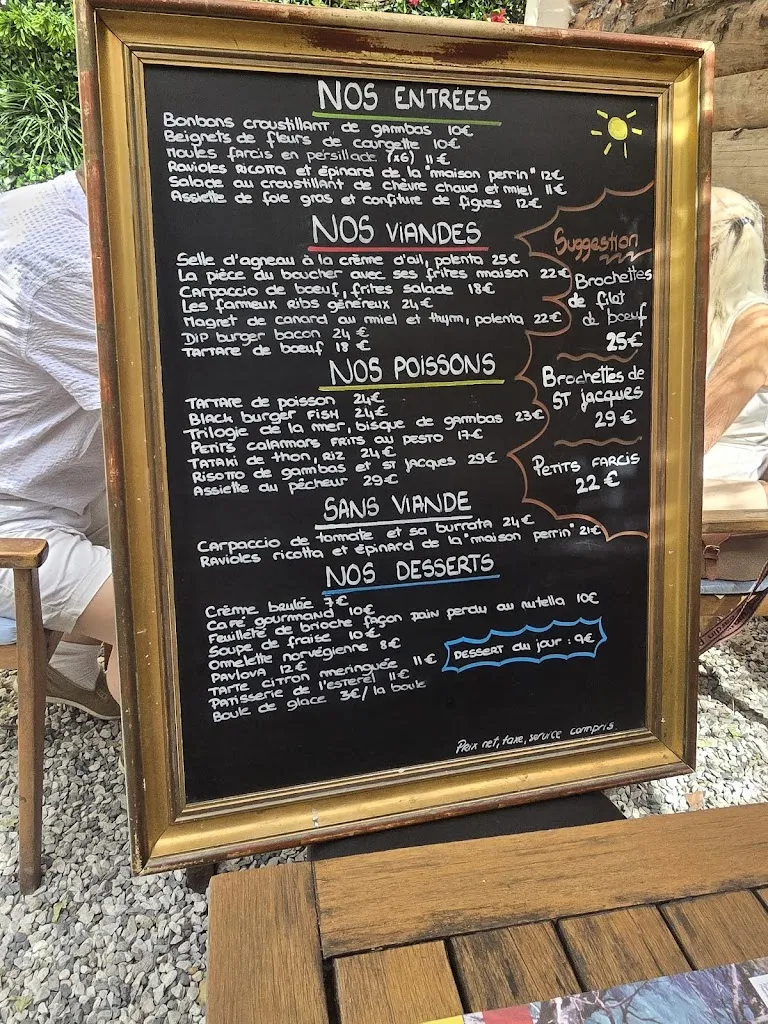 NOS ENTRÉES
Bonbons croustillant de gambas 10€
Beignets de fleurs de courgette 10€
Moules farcis en persillade (x6) 11€
Ravioles ricotta et épinard de la "maison perrin" 12€
Salade au croustillant de chèvre chaud et miel 11€
Assiette de foie gras et confiture de figues 12€
NOS VIANDES
Selle d'agneau à la crème d'ail, polenta 25€
La pièce du boucher avec ses frites maison 22€
Carpaccio de boeuf, frites salade 18€
Les fameux Ribs généreux 24€
Magret de canard au miel et thym, polenta 22€
DIP burger bacon 24€
Tartare de boeuf 18€
NOS POISSONS
Tartare de poisson 24€
Black burger FISH 24€
Trilogie de la mer, bisque de gambas 23€
Petits calamars frits au pesto 17€
Tataki de thon, riz 24€
Risotto de gambas et st Jacques 29€
Assiette du pêcheur 29€
SANS VIANDE
Carpaccio de tomate et sa burrata 24€
Ravioles ricotta et épinard de la "maison perrin" 21€
NOS DESSERTS
Crème brulée 7€
Café gourmand 10€
Feuilleté de brioche façon pain perdu au nutella 10€
Soupe de fraise 10€
Omelette norvégienne 8€
Pavlova 12€
Tarte citron meringuée 11€
Patisserie de l'esterel 11€
Boule de glace 3€/la boule
Suggestion
Brochettes
de filet
de boeuf
25€
Brochettes de
ST Jacques
29€
Petits farcis
22€
Dessert du jour : 9€
Prix net, taxe, service compris.